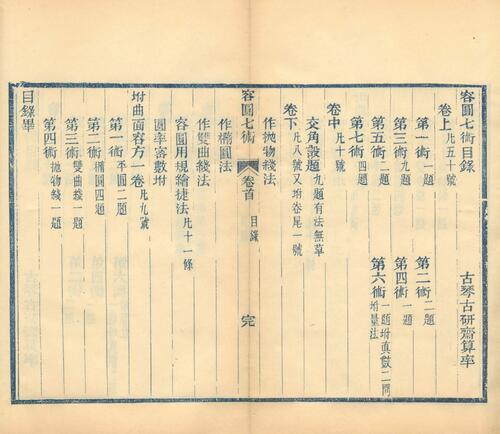 容圓七術目錄
古琴古研齋算率
卷上凡五十號
第一術一題
第二術二題
第三術九題
第四術一題
第五術二題
第六術一題坿真數二問坿量法
第七術四題
卷中凡十號
交角設題九題有法無草
卷下凡八號又坿卷尾一號
作拋物綫法
容圓七術
卷首
目錄
完
作橢圓法
作雙曲綫法
容圓用規繪捷法凡十一條
圓率審數坿
坿曲面容方一卷凡九號
第一術平圓二題
第二術橢圓四題
第三術雙曲綫一題
第四術拋物綫一題
目錄畢